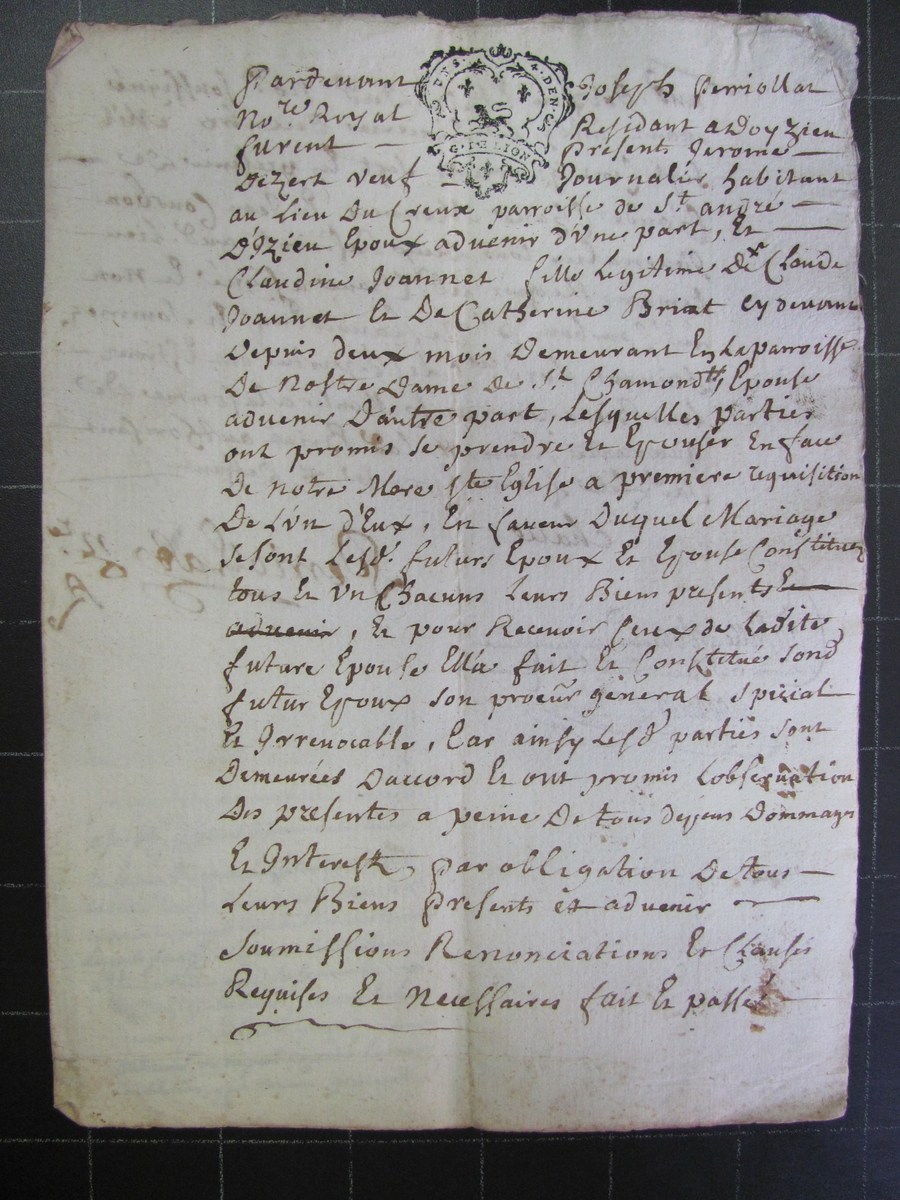 Pardevant Joseph Perriollat
No.re Royal Residant a Doyzieu
furent — Presents Jerome —
Dezert veuf — Journalier habitant
au Lieu Du Creux parroisse de St. andré —
D'Izieu Epoux advenir d'Vne part, Et —
Claudine Joannet fille Legitime De Claude
Joannet Et De Catherine Briat cy devant
Depuis deux mois Demeurant En la parroisse
De Nostre Dame de St. Chamond, Epouse
advenir D'autre part, Lesquelles parties
ont promis se prendre Et Epouser En face
De Notre Mere ste Eglise a premiere requisition
De L'un d'Eux, En faveur Duquel Mariage
se sont Lesd. futurs Epoux Et Epouse Constitués
tous Et Vn Chacuns Leurs Biens presents Et
advenir, Et pour Recevoir Ceux de Ladite
future Epouse Ella fait Et Constitué sond
futur Epoux son procur general special
Et Irrevocable, Car ainsy Lesd parties sont
Demeurées Daccord Et ont promis Lobservation
Des presentes a peine De tous depens Dommages
Et Interest, par obligation De tous —
Leurs Biens Presents et advenir —
Soumissions Renonciations Et Clauses
Requises Et Necessaires fait Et passé —
G. DE LION
4. DEN.